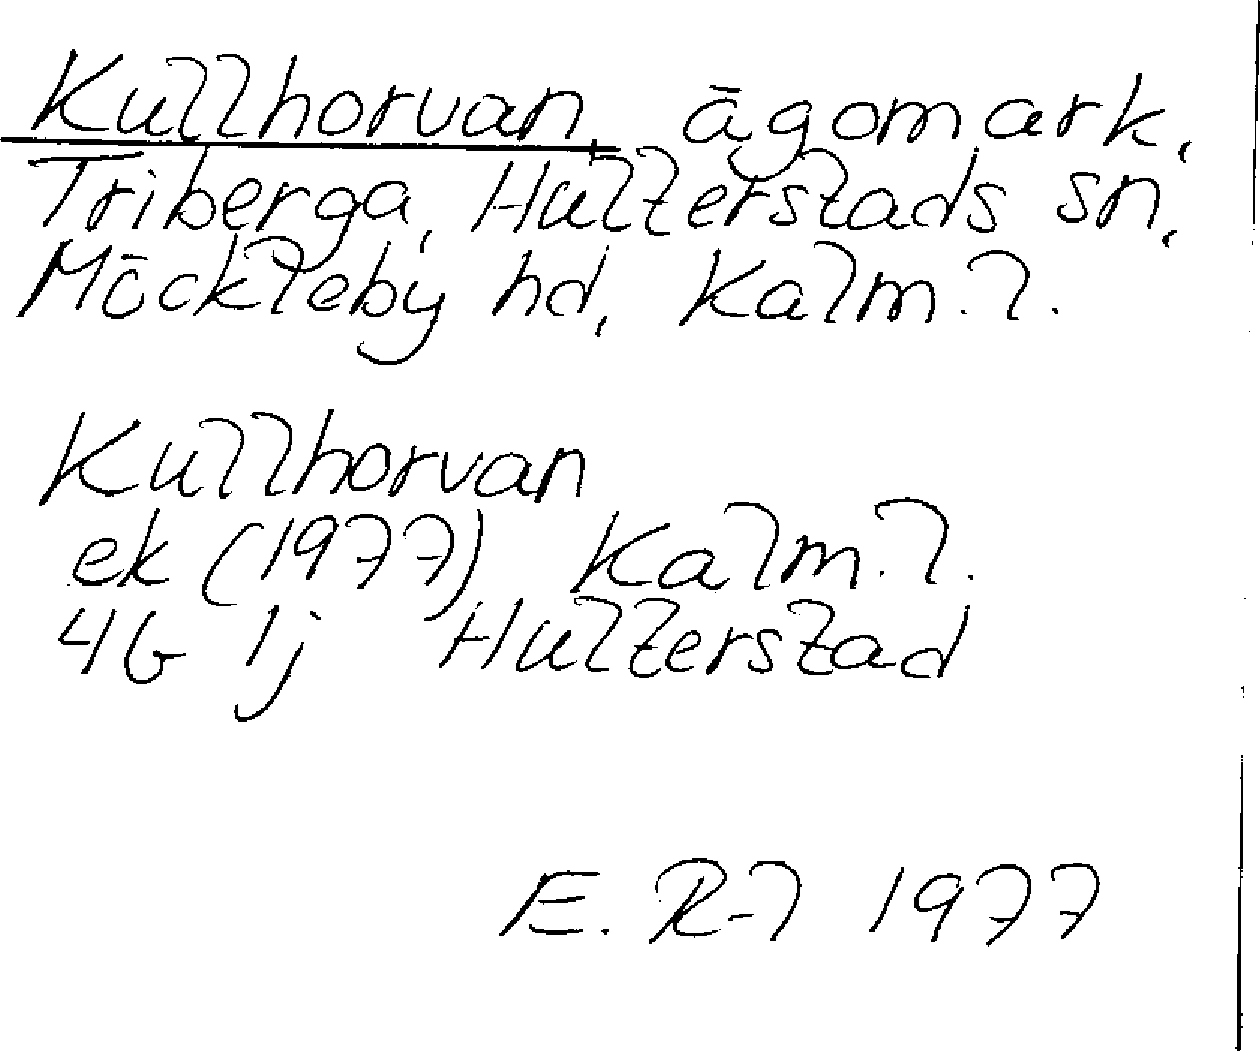 Kullhorvan, ägomark,
Triberga, Hulterstads sn,
Möckleby hd, Kalm. l.
Kullhorvan
ek (1977) Kalm. l.
4G 1j Hulterstad
E. R-l 1977